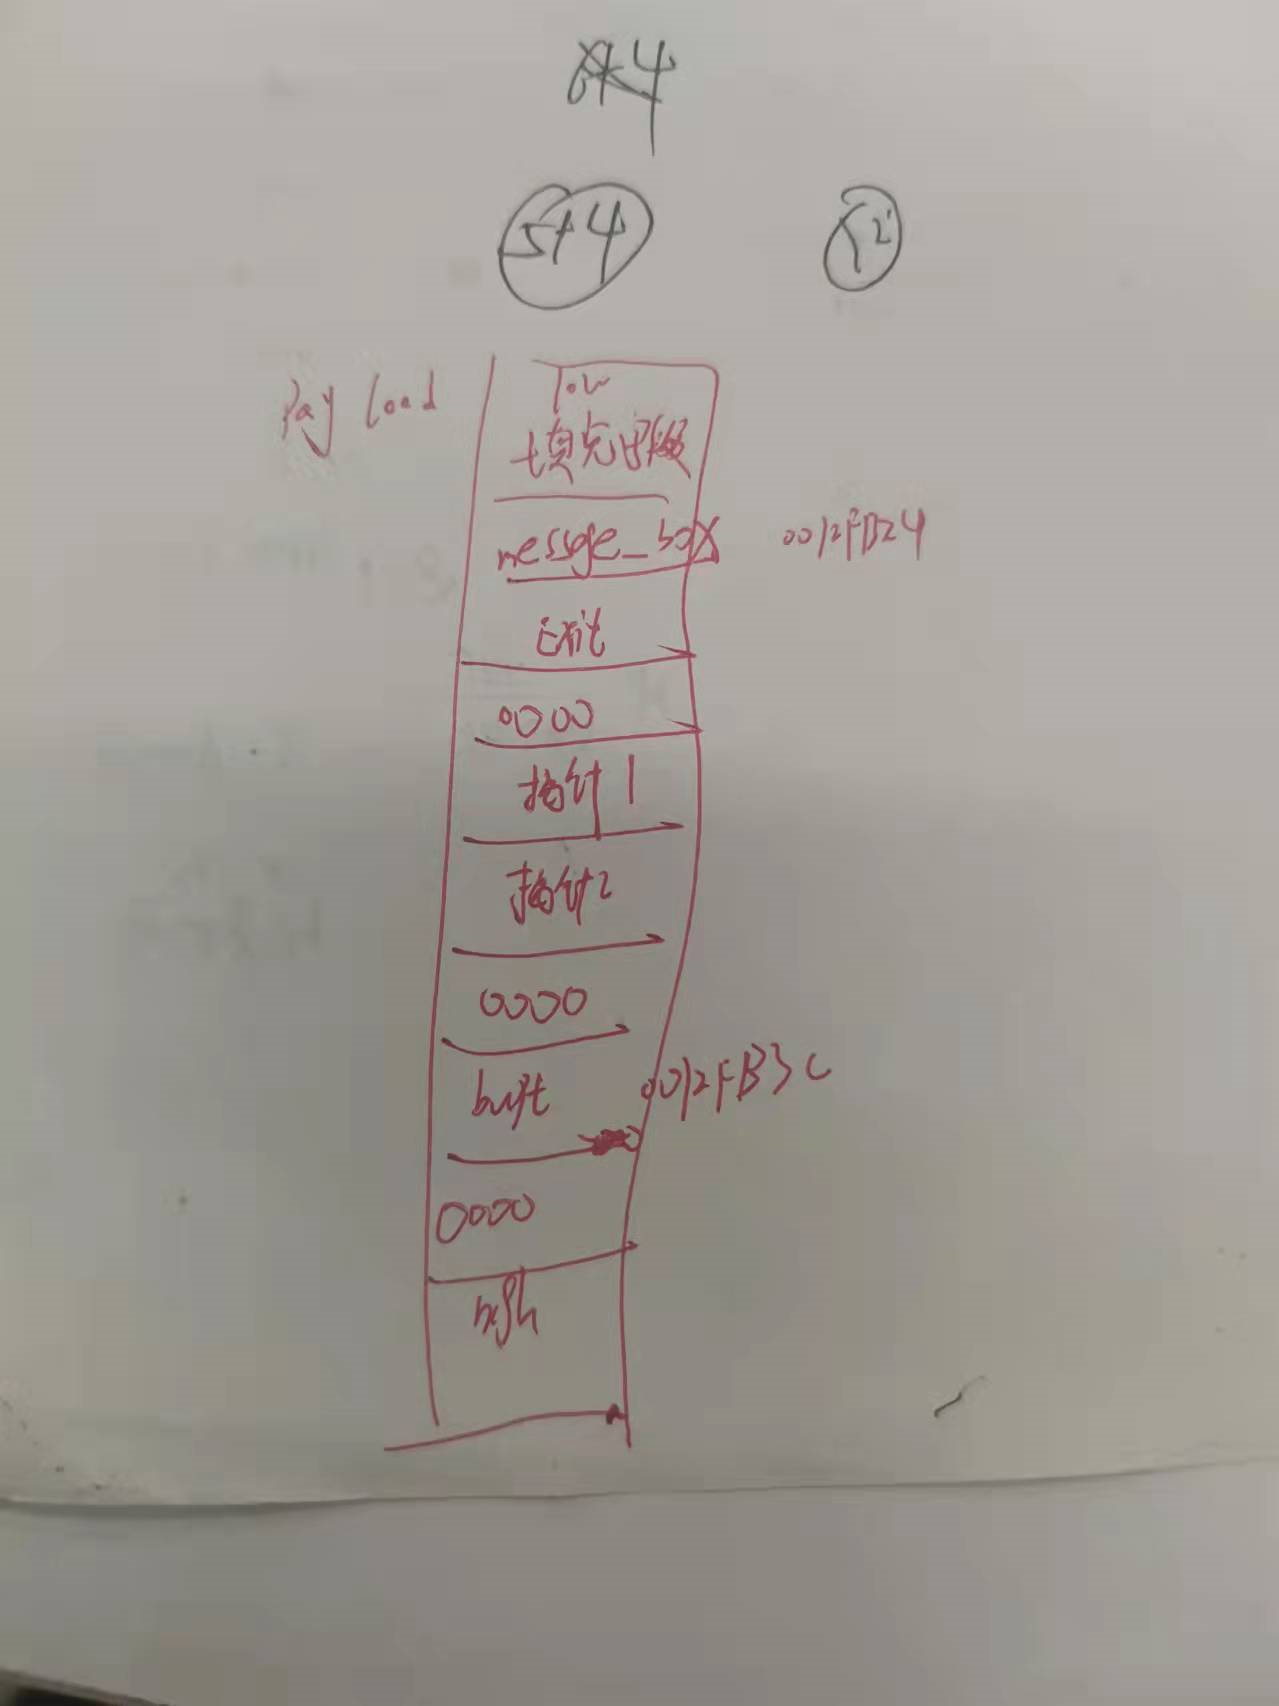 5+4
Pay load
low
填充字段
messge_box 0012FB24
Exit
0000
指针1
指针2
0000
buft 0012FB3C
0000
high